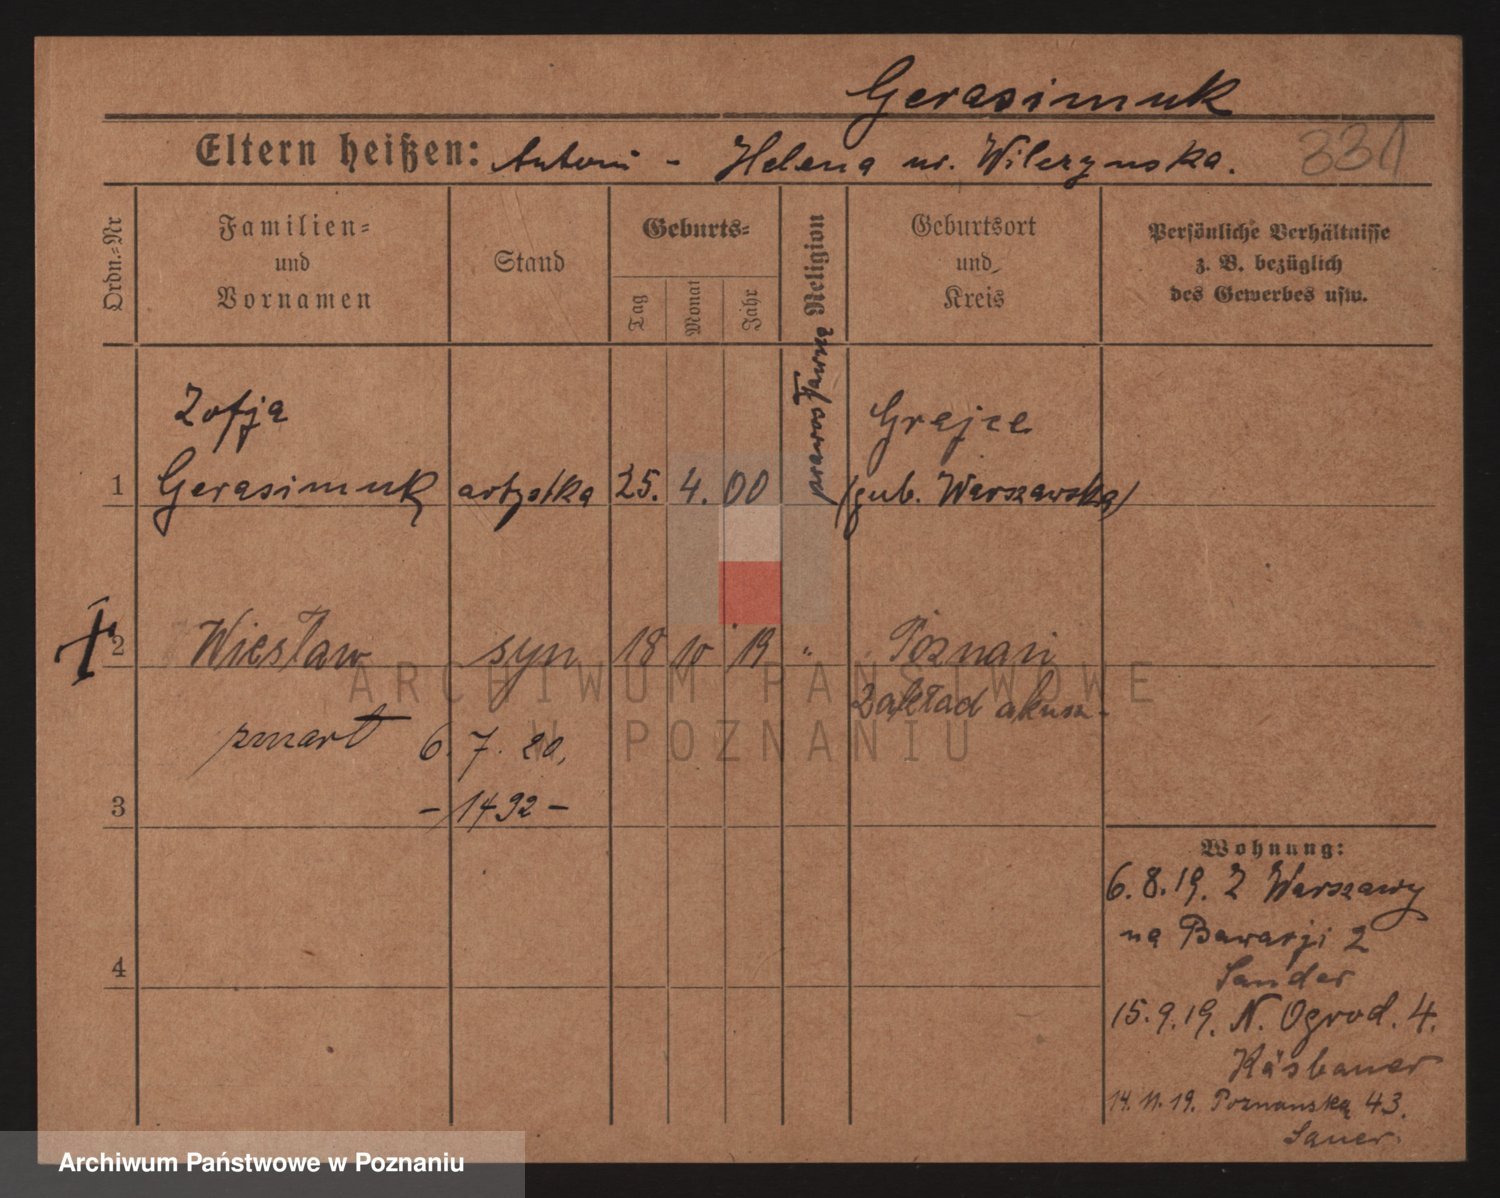 Gerasimuk
Eltern heißen: Antoni - Helena ur. Wilczynska.
331
Ordn.=Nr
Familien=
und
Vornamen
Stand
Geburts=
Tag
Monat
Jahr
Religion
Geburtsort
und
Kreis
Persönliche Verhältnisse
z. B. bezüglich
des Gewerbes usw.
Zofja
Grajce
1 Gerasimuk artystka 25. 4. 00 (gub. Warszawska)
2 Wiesław syn 18 10 19 " Poznań
Zakład akusz.
zmarł 6. 7. 20,
3 - 1492 -
4
Wohnung:
6.8.19. Z Warszawy
na Bawarji 2
Sander
15.9.19. N. Ogrod. 4.
Käsbauer
14.11.19. Poznanską 43.
Sauer.
ARCHIWUM PAŃSTWOWE
W POZNANIU
Archiwum Państwowe w Poznaniu